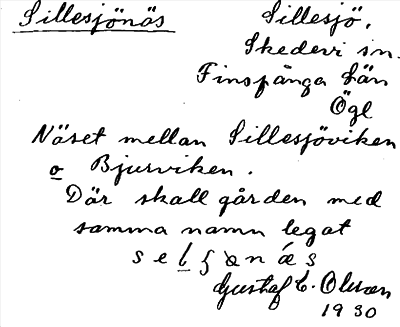 Sillesjönäs
Sillesjö,
Skedevi sn.
Finspånga län
Ögl
Näset mellan Sillesjöviken
o Bjurviken.
Där skall gården med
samma namn legat
Gustaf C. Olsson
1930